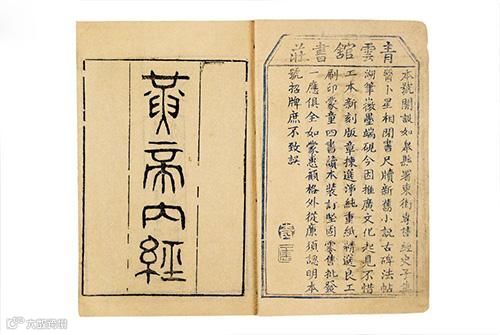 青雲舘書莊
本號開設如皋縣署東街專售經史子集
醫卜星相閒書尺牘新舊小說古碑法帖
湖筆徽墨端硯今因推廣文化起見不惜
工本新刻版章揀選淨純重紙精選良工
刷印蒙童四書讀本裝訂堅固零售批發
一應俱全如蒙惠顧格外從廉須認明本
號招牌庶不致誤
黃帝內經
大数跨境